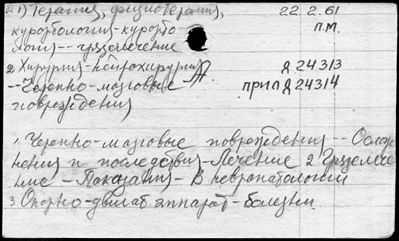 1) Терапия, физиотерапия, 22.2.61
курортология-курорто П.М.
логия--грязелечение
2. Хирургия-нейрохирургия Д 24313
--Черепно-мозговые прил Д 24314
повреждения
1. Черепно-мозговые повреждения--Ослож
нения и последствия-Лечение 2 Грязелече
ние-Показания-В невропатологии
3. Опорно-двигат аппарат-болезни